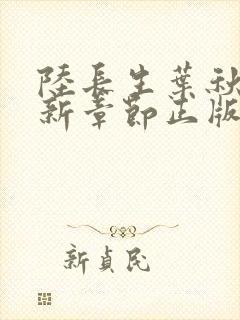 陸長生葉秋
新章節正版
新貞民